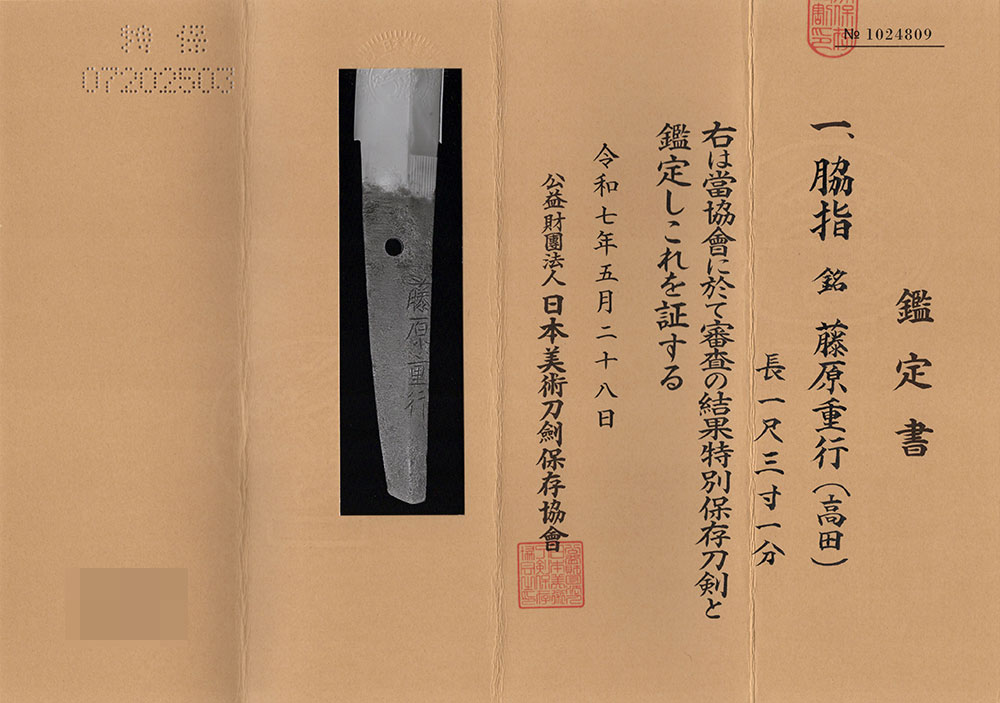 № 1024809
鑑定書
一、脇指 銘 藤原重行(高田)
長一尺三寸一分
右は當協會に於て審査の結果特別保存刀剣と
鑑定しこれを証する
令和七年五月二十八日
公益財團法人 日本美術刀劍保存協會
藤原重行
特保
07202503